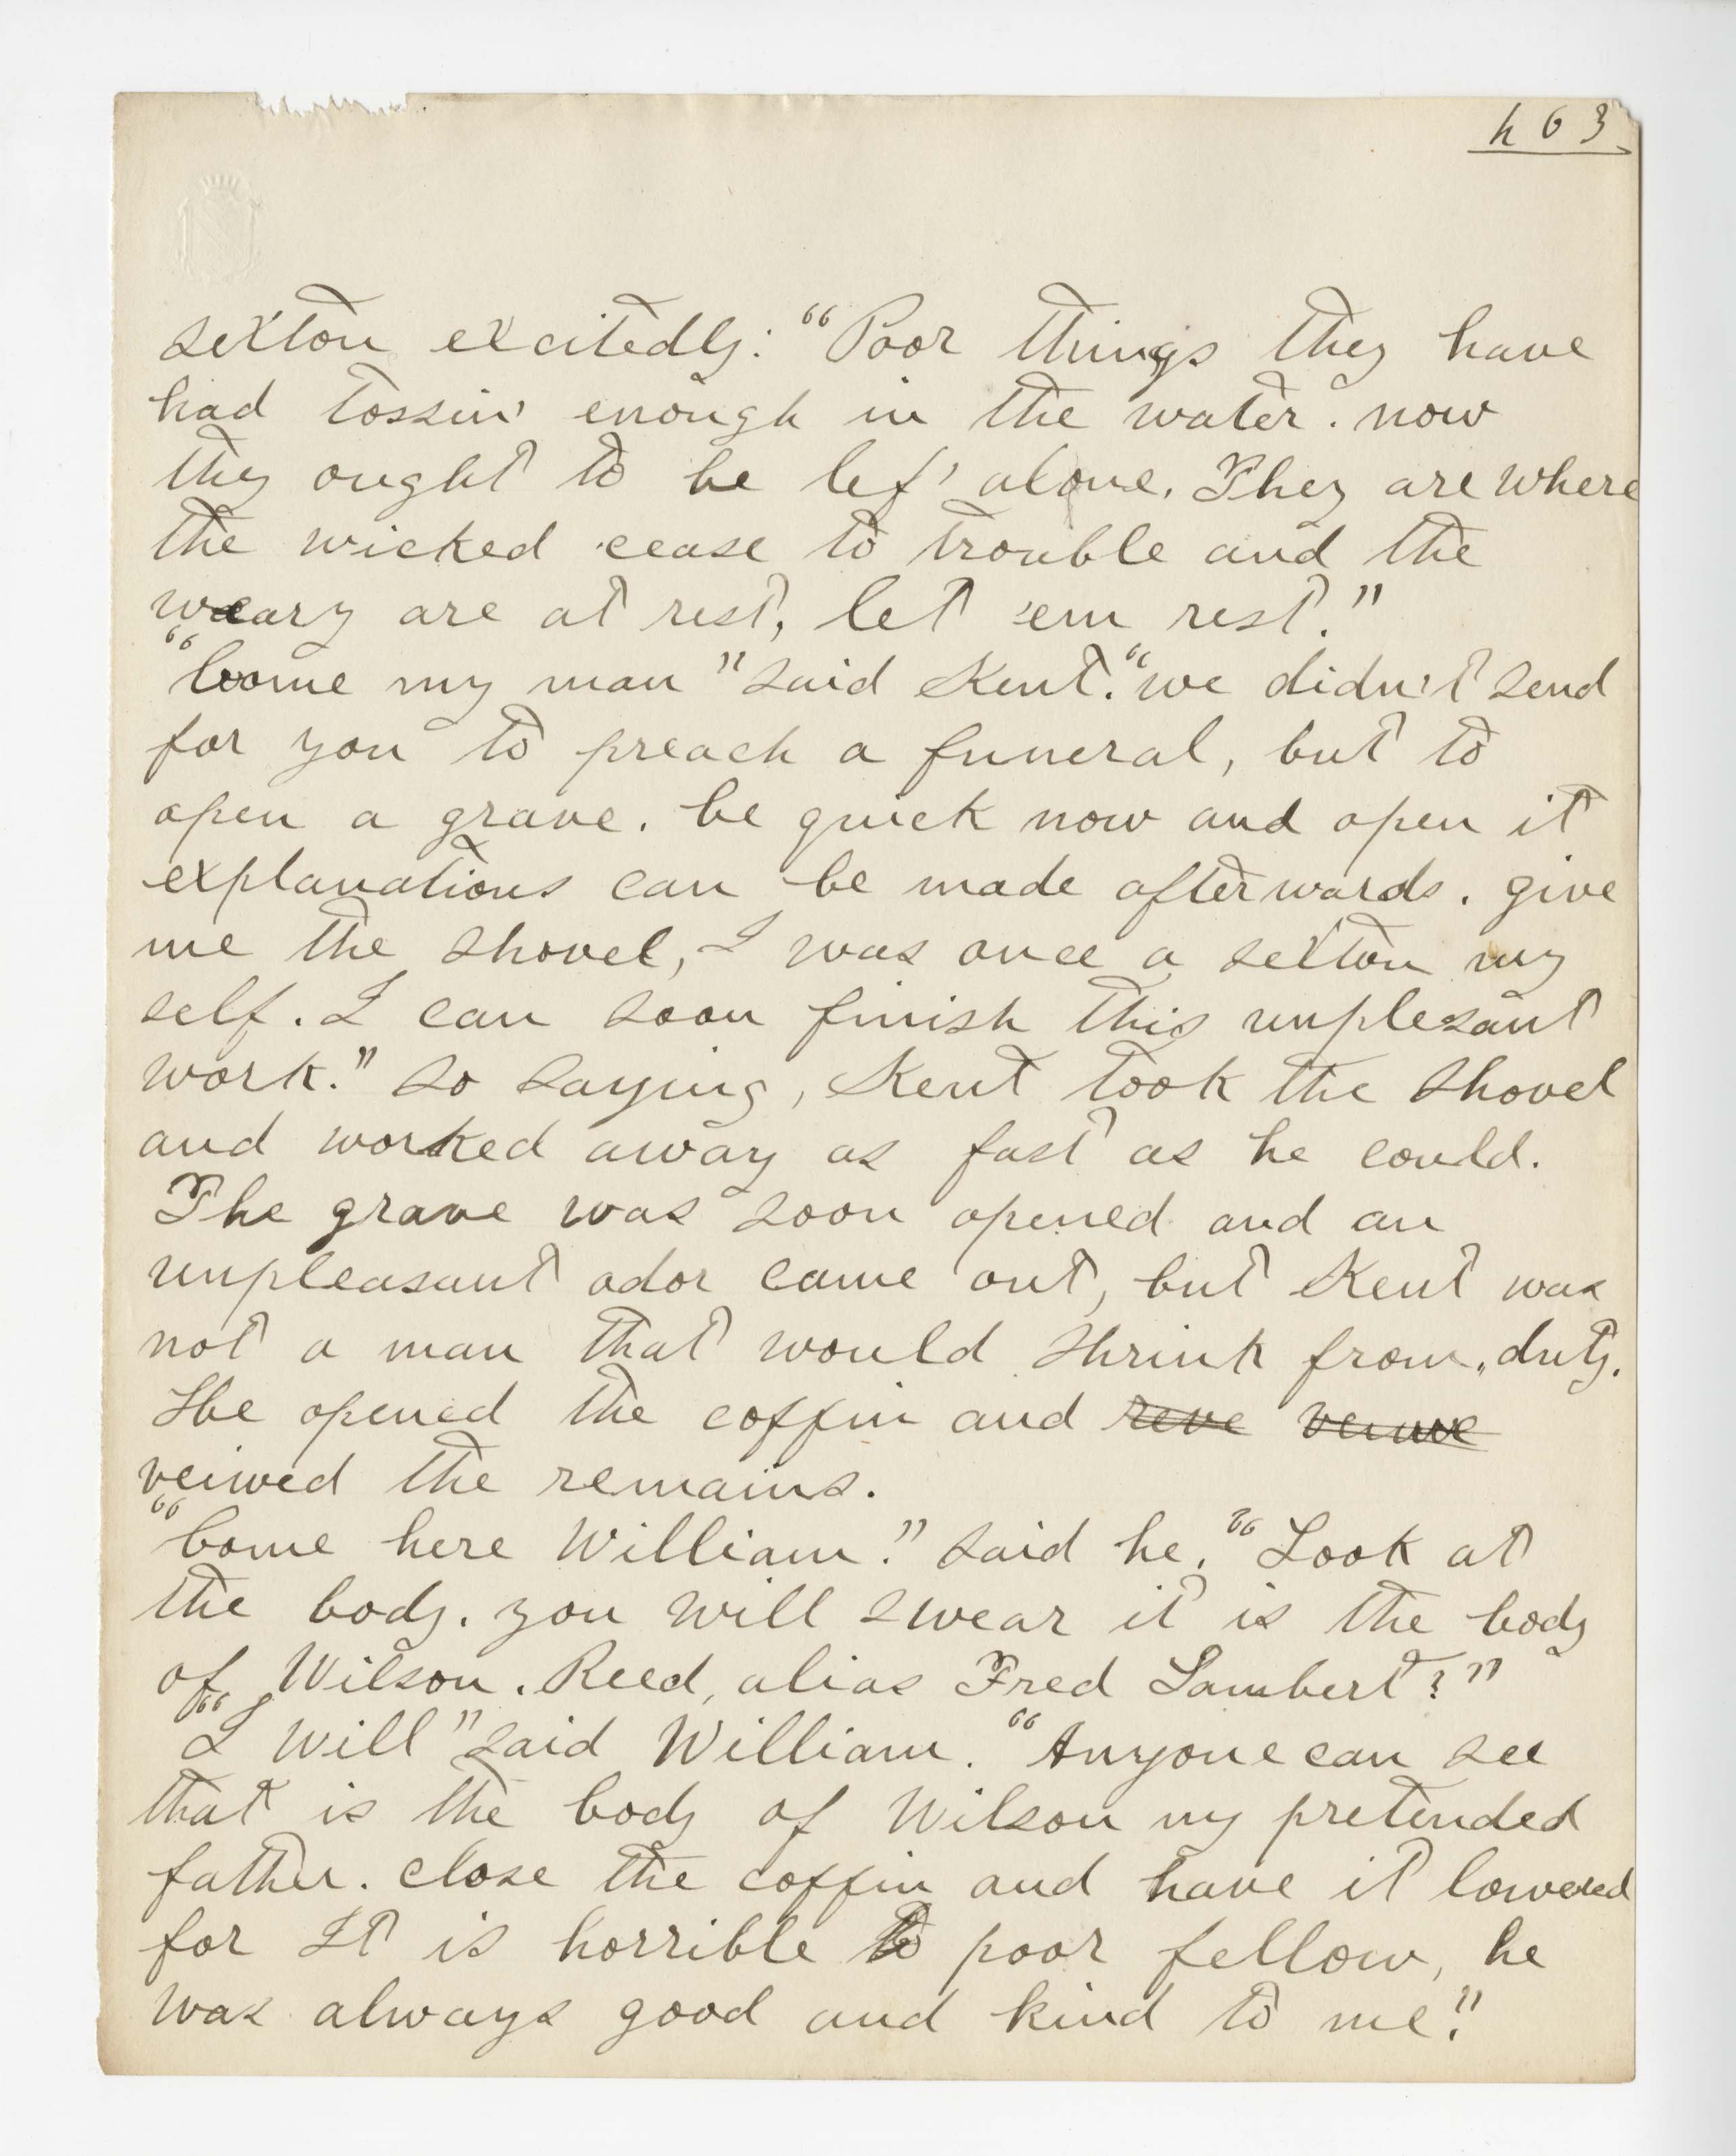 h 63
sexton excitedly: "Poor things they have
had tossin' enough in the water. now
they ought to be lef' alone. They are where
the wicked cease to trouble and the
weary are at rest, let 'em rest."
"Come my man" said Kent. "we didn't send
for you to preach a funeral, but to
open a grave. be quick now and open it
explanations can be made afterwards. give
me the shovel, I was once a sexton my
self. I can soon finish this unplesant
work." so saying, Kent took the shovel
and worked away as fast as he could.
The grave was soon opened and an
unpleasant odor came out, but Kent was
not a man that would shrink from duty.
He opened the coffin and reve
veiwed the remains.
"Come here William." said he. "Look at
the body. you will swear it is the body
of Wilson. Reed, alias Fred Lambert?"
"I will" said William. "Anyone can see
that is the body of Wilson my pretended
father. close the coffin and have it lowered
for It is horrible to poor fellow, he
was always good and kind to me."